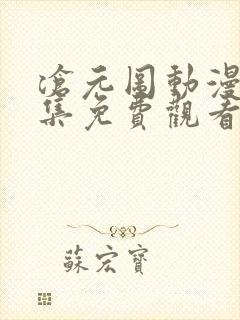 滄元圖動漫
集免費觀看
蘇宏寶